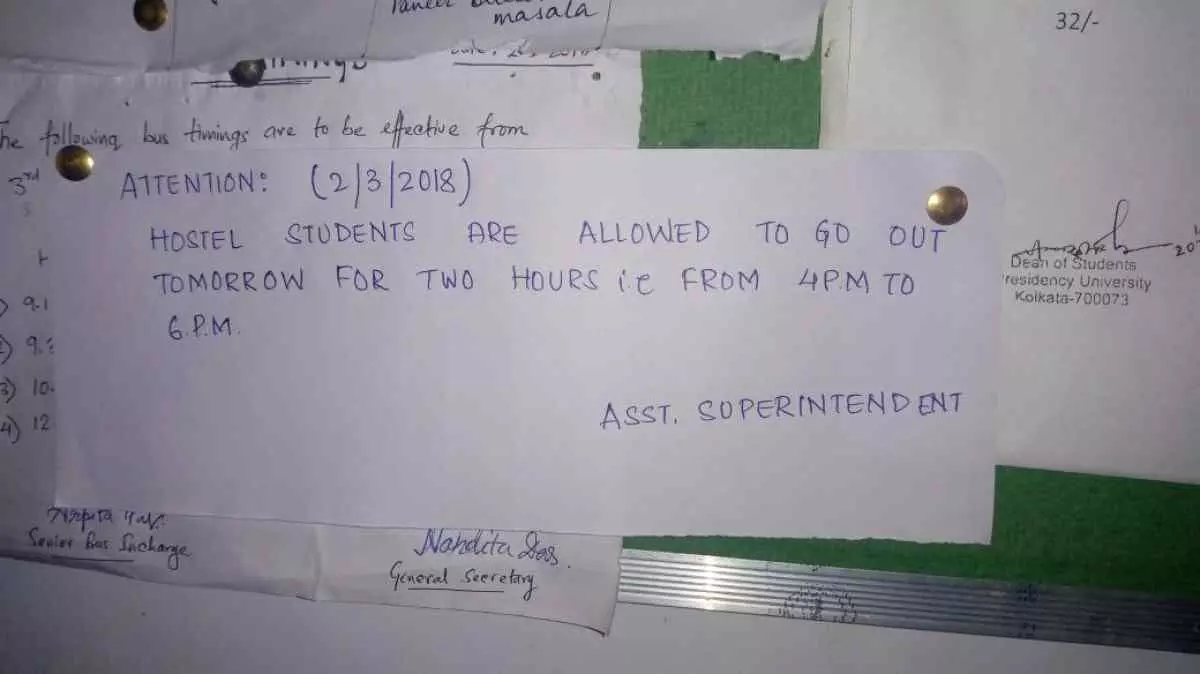 masala
32/-
The following bus timings are to be effective from
3rd
ATTENTION: (2/3/2018)
HOSTEL STUDENTS ARE ALLOWED TO GO OUT
TOMORROW FOR TWO HOURS i.e FROM 4P.M TO
6.P.M.
ASST. SUPERINTENDENT
Dean of Students
residency University
Kolkata-700073
9.1
9.
3) 10.
4) 12
Senior Bus Incharge
Nandita Das.
General Secretary